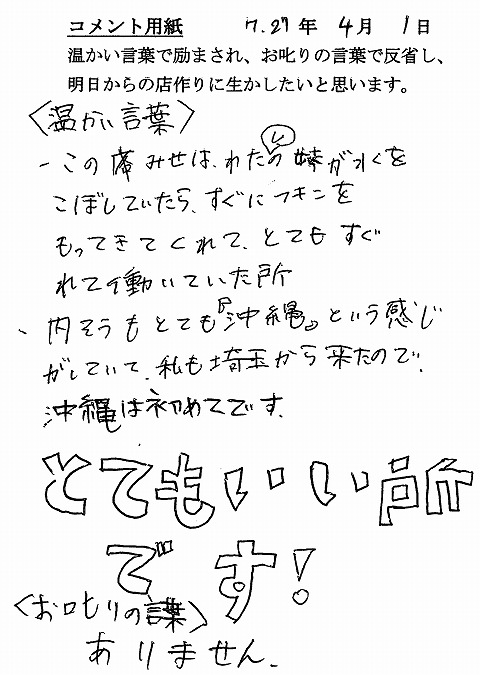 コメント用紙 7.27年 4月 1日
温かい言葉で励まされ、お叱りの言葉で反省し、
明日からの店作りに生かしたいと思います。
〈温かい言葉〉
- この席みせは、わたしの妹が水を
こぼしていたら、すぐにフキンを
もってきてくれて、とてもすぐ
れて働いていた所
、内そうもとても『沖縄』という感じ
がしていて、私も埼玉から来たので、
沖縄は初めてです。
とてもいい所
です!
〈お口七りの言葉〉
ありません。